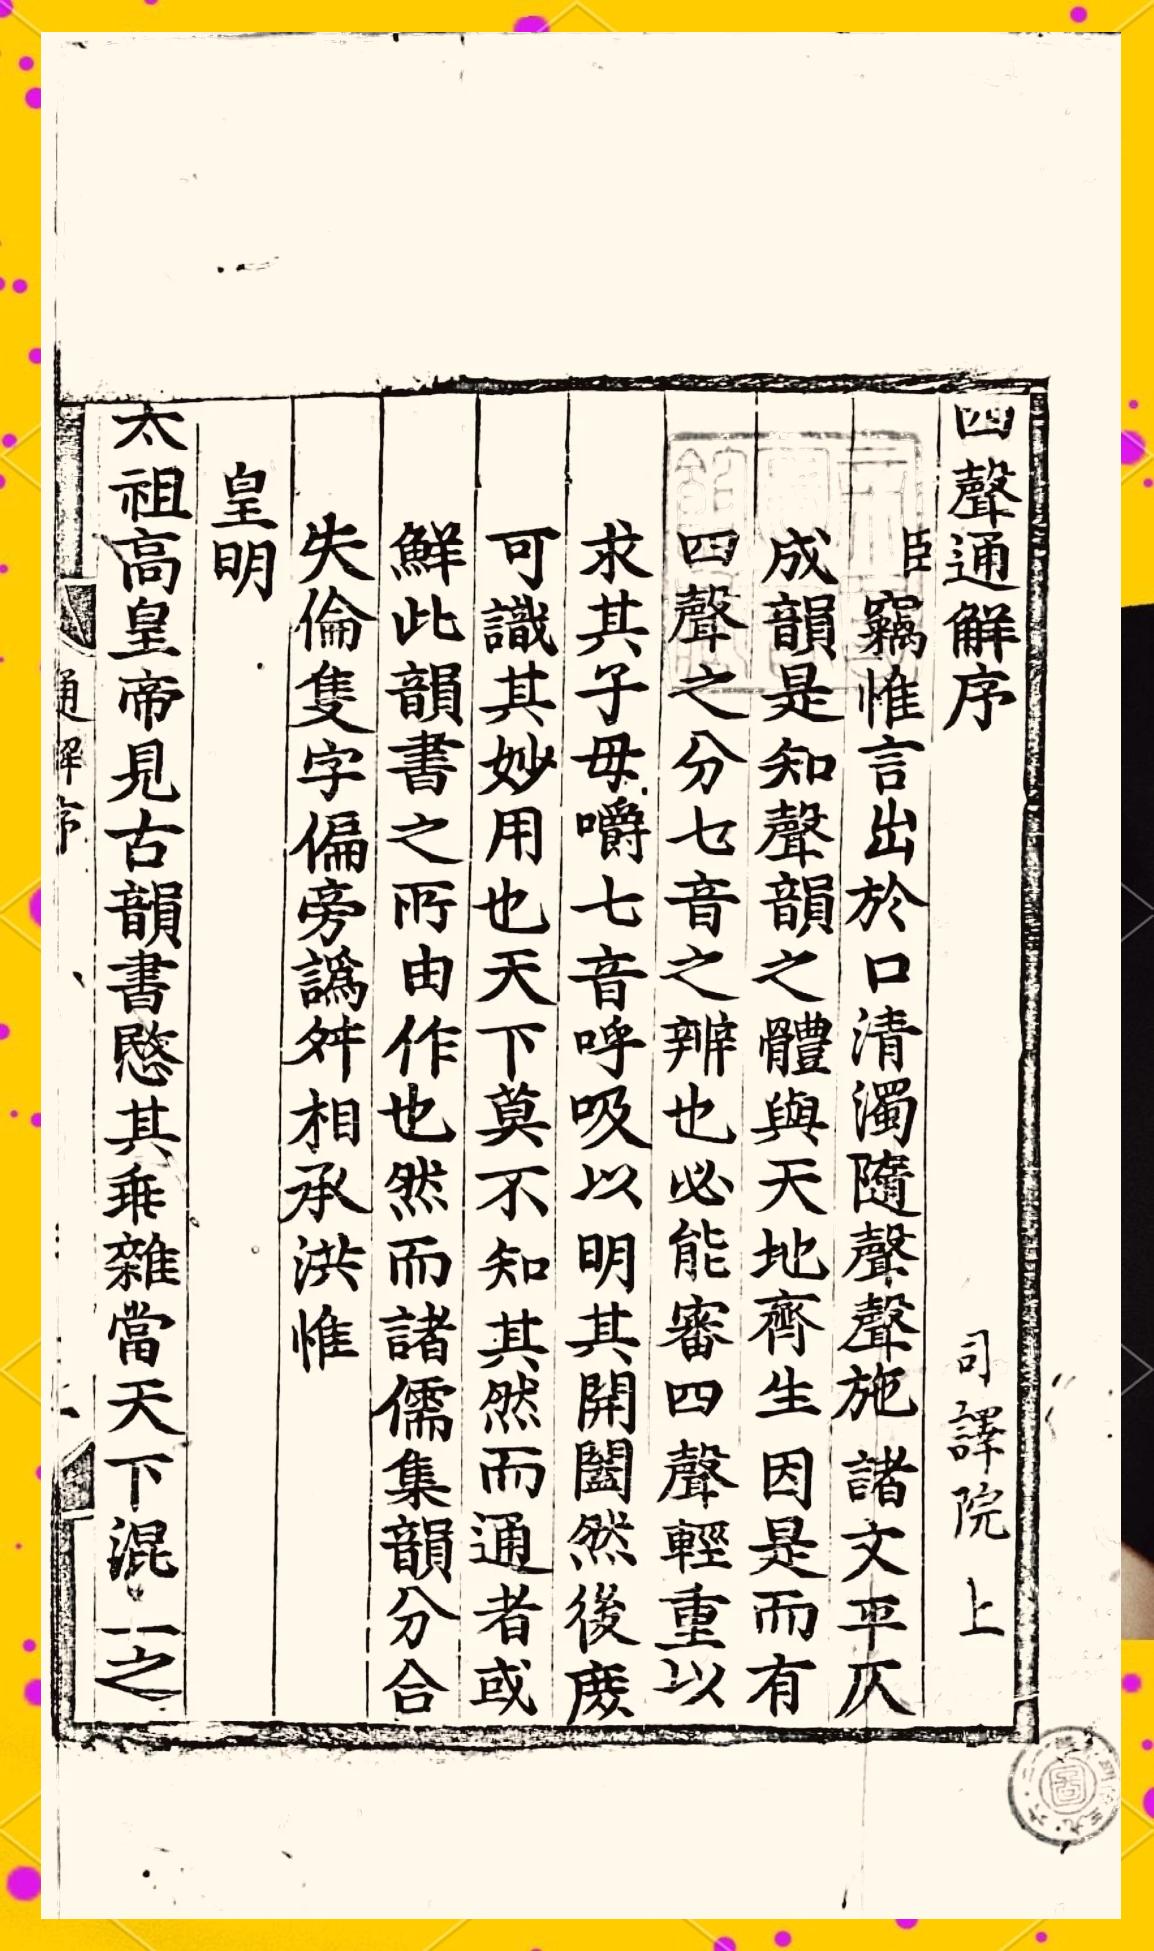 四聲通解序 司譯院上
臣竊惟言出於口清濁隨聲聲施諸文平仄
成韻是知聲韻之體與天地齊生因是而有
四聲之分七音之辨也必能審四聲輕重以
求其子母嚼七音呼吸以明其開闔然後庻
可識其妙用也天下莫不知其然而通者或
鮮此韻書之所由作也然而諸儒集韻分合
失倫隻字偏旁譌舛相承洪惟
皇明
太祖高皇帝見古韻書愍其乖雜當天下混一之
通解序